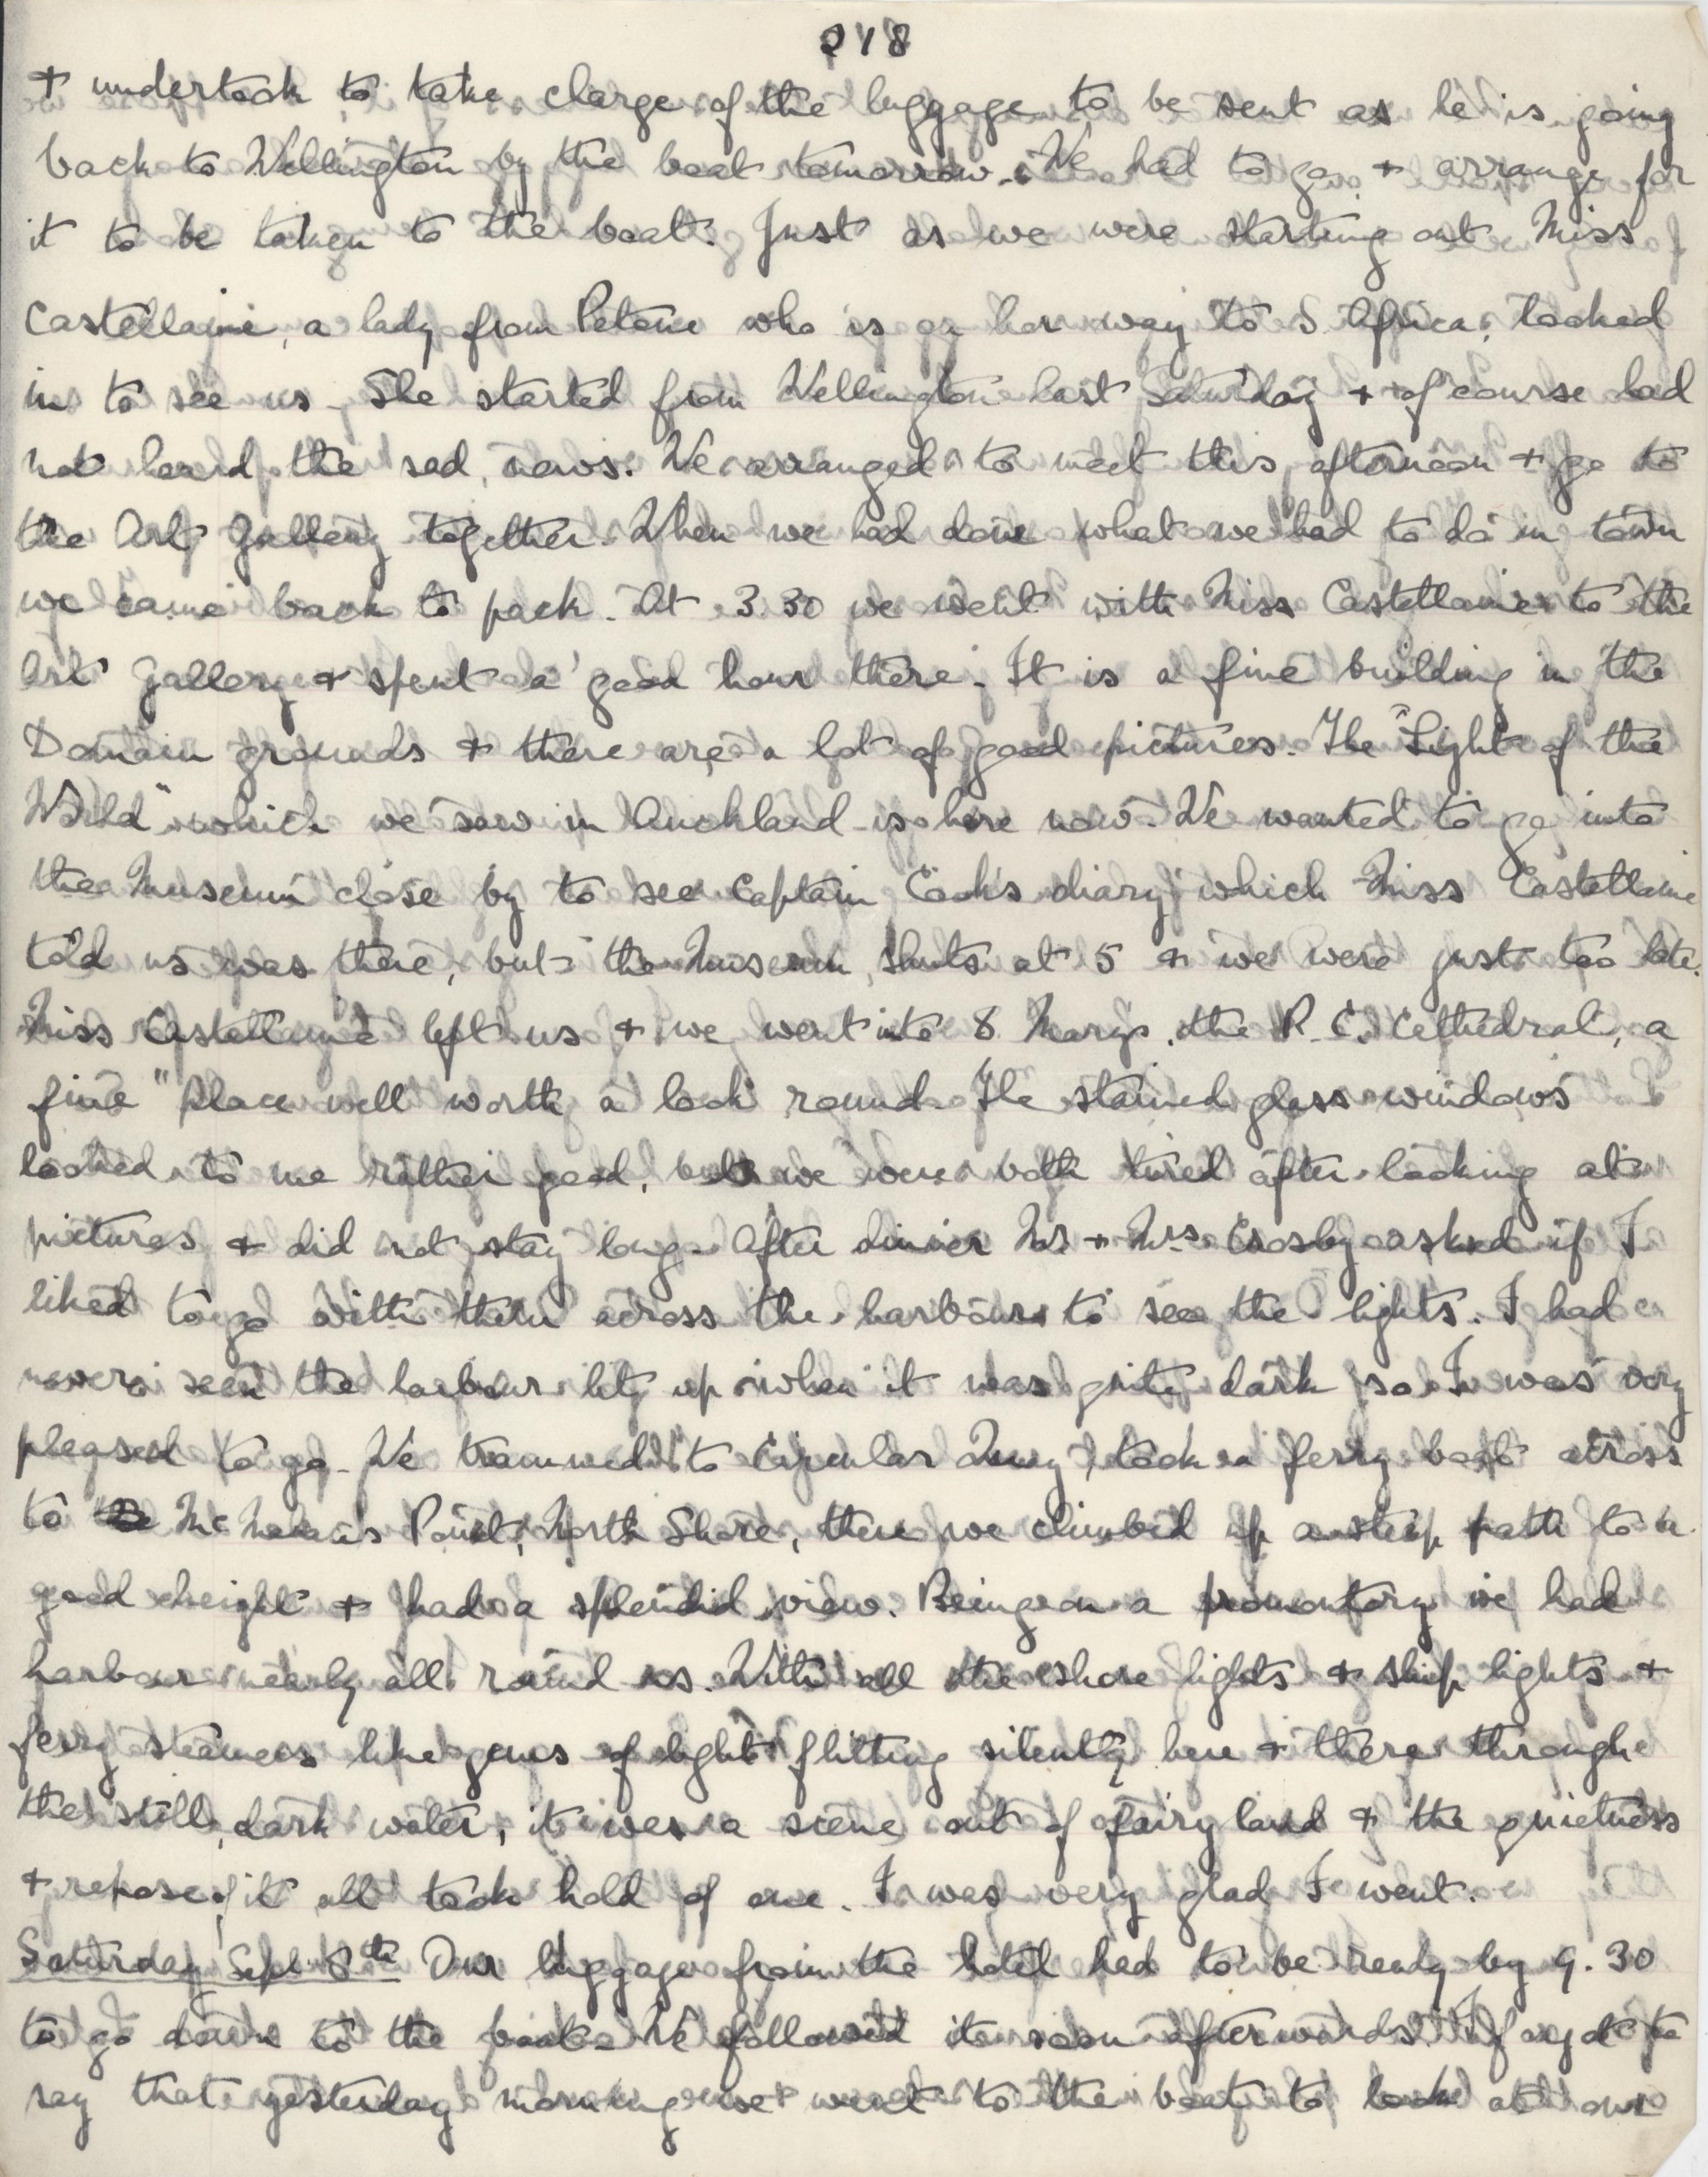 218
+ undertook to take charge of the luggage to be sent as he is going
back to Wellington by the boat tomorrow. We had to go + arrange for
it to be taken to the boat. Just as we were starting out Miss
Castellaine, a lady from Petone who is on her way to S. Africa, looked
in to see us. She started from Wellington last Saturday + of course had
not heard the sad news. We arranged to meet this afternoon + go to
the Art Gallery together. When we had done what we had to do in town
we came back to pack. At 3.30 we went with Miss Castellaine to the
Art Gallery + spent a good hour there. It is a fine building in the
Domain grounds + there are a lot of good pictures. The "Light of the
World" which we saw in Auckland is here now. We wanted to go into
the Museum close by to see Captain Cook's diary which Miss Castellaine
told us was there, but the Museum shuts at 5 + we were just too late.
Miss Castellaine left us + we went into S Marys, the R. C. Cethedral, a
fine place well worth a look round. The stained glass windows
looked to me rather good, but we were both tired after looking at
pictures + did not stay long. After dinner Mr. + Mrs Crosby asked if I
liked to go with them across the harbour to see the lights. I had
never seen the harbour lit up when it was quite dark so I was very
pleased to go. We trammed to Circular Quay, took a ferry boat across
to Mc Point, North Shore, there we climbed up a steep path to a
good height + had a splendid view. Being on a promontory we had
harbour nearly all round us. With all the shore lights + ship lights +
ferry steamers like gems of light flitting silently here + there through
the still, dark water, it was a scene out of fairy land + the quietness
+ repose of it all took hold of one. I was very glad I went.
Saturday Sept. 8th Our luggage from the hotel had to be ready by 9.30
to go down to the boat. We followed it soon afterwards. I forgot to
say that yesterday morning we went to the boat to look at our